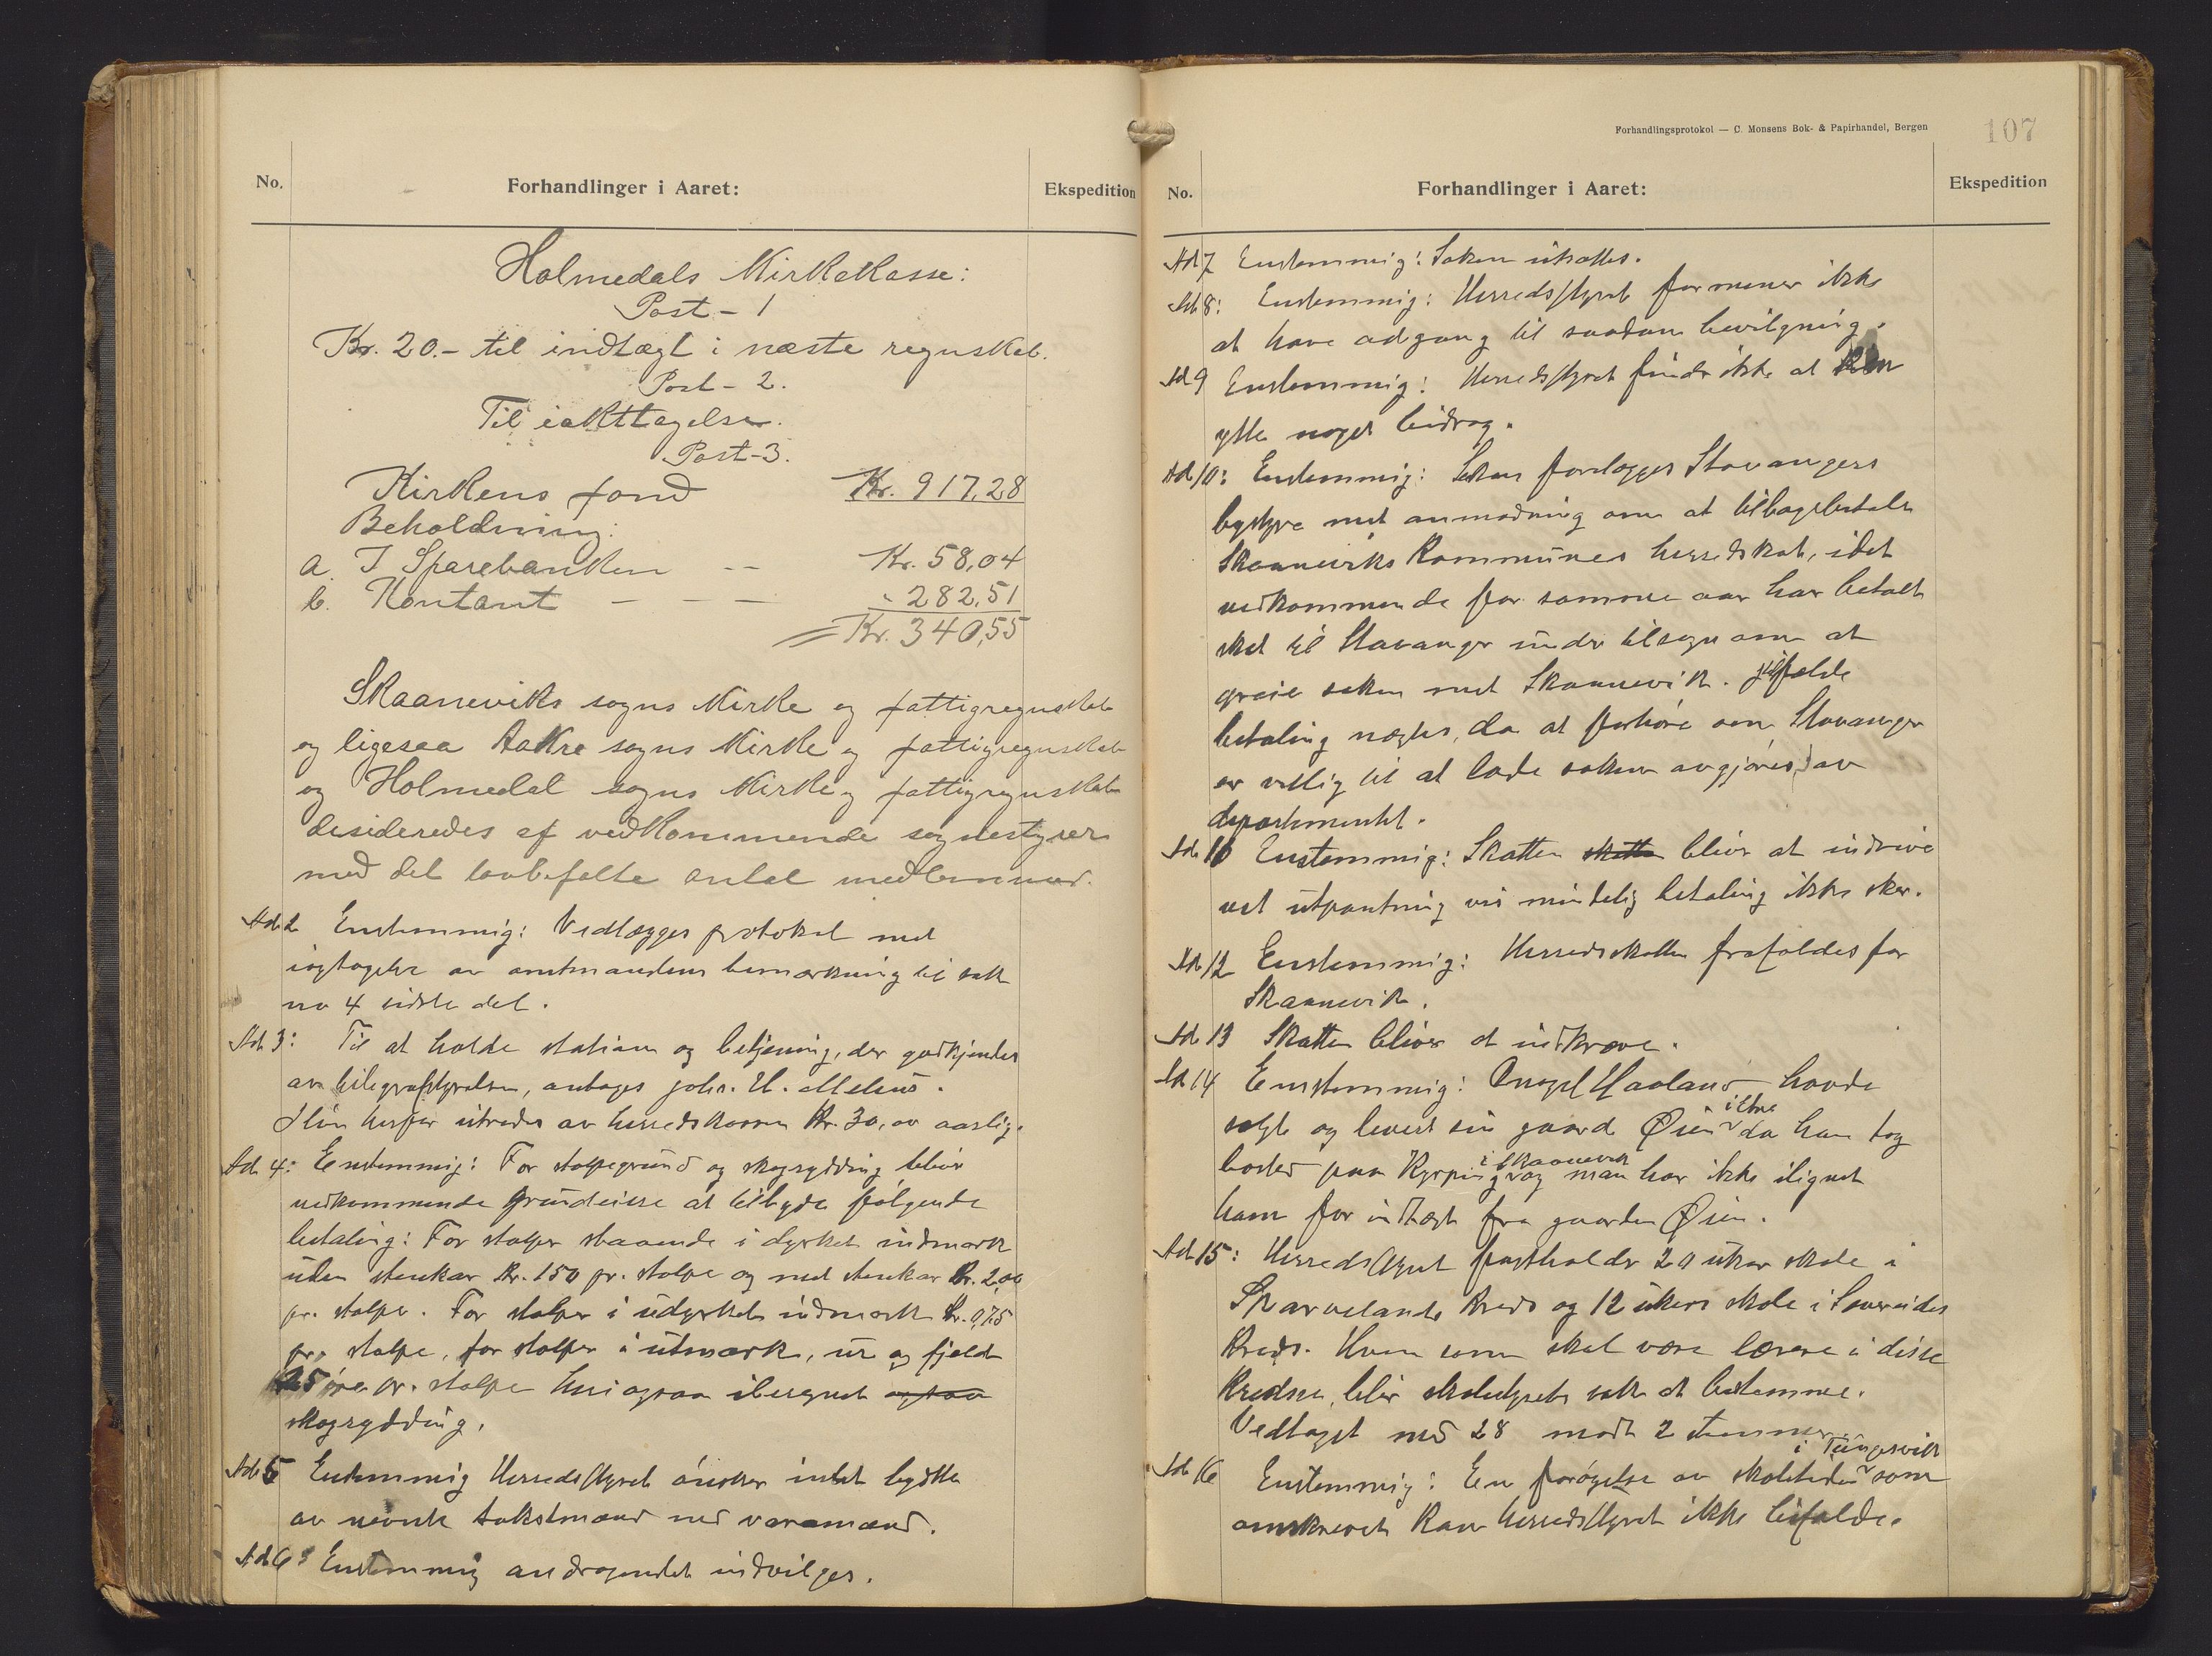 No. Forhandlinger i Aaret: Ekspedition
Holmedals Kirkekasse:
Post - 1
Kr. 20.- til indtægt i næste regnskab.
Post - 2.
Til iakttagelse.
Post - 3.
Kirkens fond Kr. 917,28
Beholdning:
a. I Sparebanken -- Kr. 58,04
b. Kontant - - - " 282,51
= Kr. 340,55
Skaaneviks sogns Kirke og fattigregnskab
og ligesaa Aakre sogns Kirke og fattigregnskab
og Holmedal sogns Kirke og fattigregnskab
desideredes af vedkommende sognestyrer
med det lovbefalte antal medlemmer.
Ad 2 Enstemmig: Vedlægges protokol med
iagtagelse av amtmandens bemerkning til sak
no 4 sidste del.
Ad 3: Til at holde station og betjening, der godkjendes
av telegrafstyrelsen, antages Johs. H. Milens.
Leien herfor utredes av herredskassen Kr. 30,00 aarlig.
Ad 4: Enstemmig: For stolpegrund og skogrydding bliver
vedkommende grundeiere at tilbyde følgende
betaling: For stolper staaende i dyrket indmark
uten stenkar Kr. 150 pr. stolpe og med stenkar Kr. 2,00
pr. stolpe. For stolper i udyrket indmark Kr. 0,75
pr. stolpe, for stolper i utmark, ur og fjeld
25 øre pr. stolpe heri ogsaa iberegnet ogsaa
skogrydding.
Ad 5 Enstemmig Herredsstyret ønsker intet bytte
av nævnte takstmænd med varamænd.
Ad 6: Enstemmig andragendet indvilges.
Forhandlingsprotokol — C. Monsens Bok- & Papirhandel, Bergen 107
No. Forhandlinger i Aaret: Ekspedition
Ad 7 Enstemmig: Saken utsættes.
Ad 8: Enstemmig: Herredsstyret formener ikke
at have adgang til saadan bevilgning.
Ad 9 Enstemmig: Herredsstyret finder ikke at kan
yde noget bidrag.
Ad 10: Enstemmig: Saken forelægges Stavangers
bystyre med anmodning om at tilbagebetale
Skaaneviks Kommunes herredskat, idet
vedkommende for samme aar har betalt
skat til Stavanger under tilsagn om at
greie saken med Skaanevik. Ifald
betaling nægtes, da at forhøre om Stavanger
er villig til at lade saken avgjøres av
departementet.
Ad 10 Enstemmig: Skatten skatten bliver at indrive
ved utpantning vis mindelig betaling ikke sker.
Ad 12 Enstemmig: Herredsskatten frafaldes for
Skaanevik.
Ad 13 Skatten bliver at indkræve.
Ad 14 Enstemmig: Haaland havde
solgt og levert sin gaard Øien i Etne da han tog
bosted paa Kyrping i Skaanevik og man har ikke ilignet
ham for indtægt fra gaarden Øien.
Ad 15: Herredsstyret fastholder 20 ukers skole i
Skarvelands Kreds og 12 ukers skole i
Kreds. Hvem som skal være lærere i disse
Kredse, blir skolestyrets sak at bestemme.
Vedtaget med 28 mot 2 stemmer.
Ad 16 Enstemmig: En forøgelse av skoletiden i Tungesvik som
omskrevet kan herredsstyret ikke bifalde.